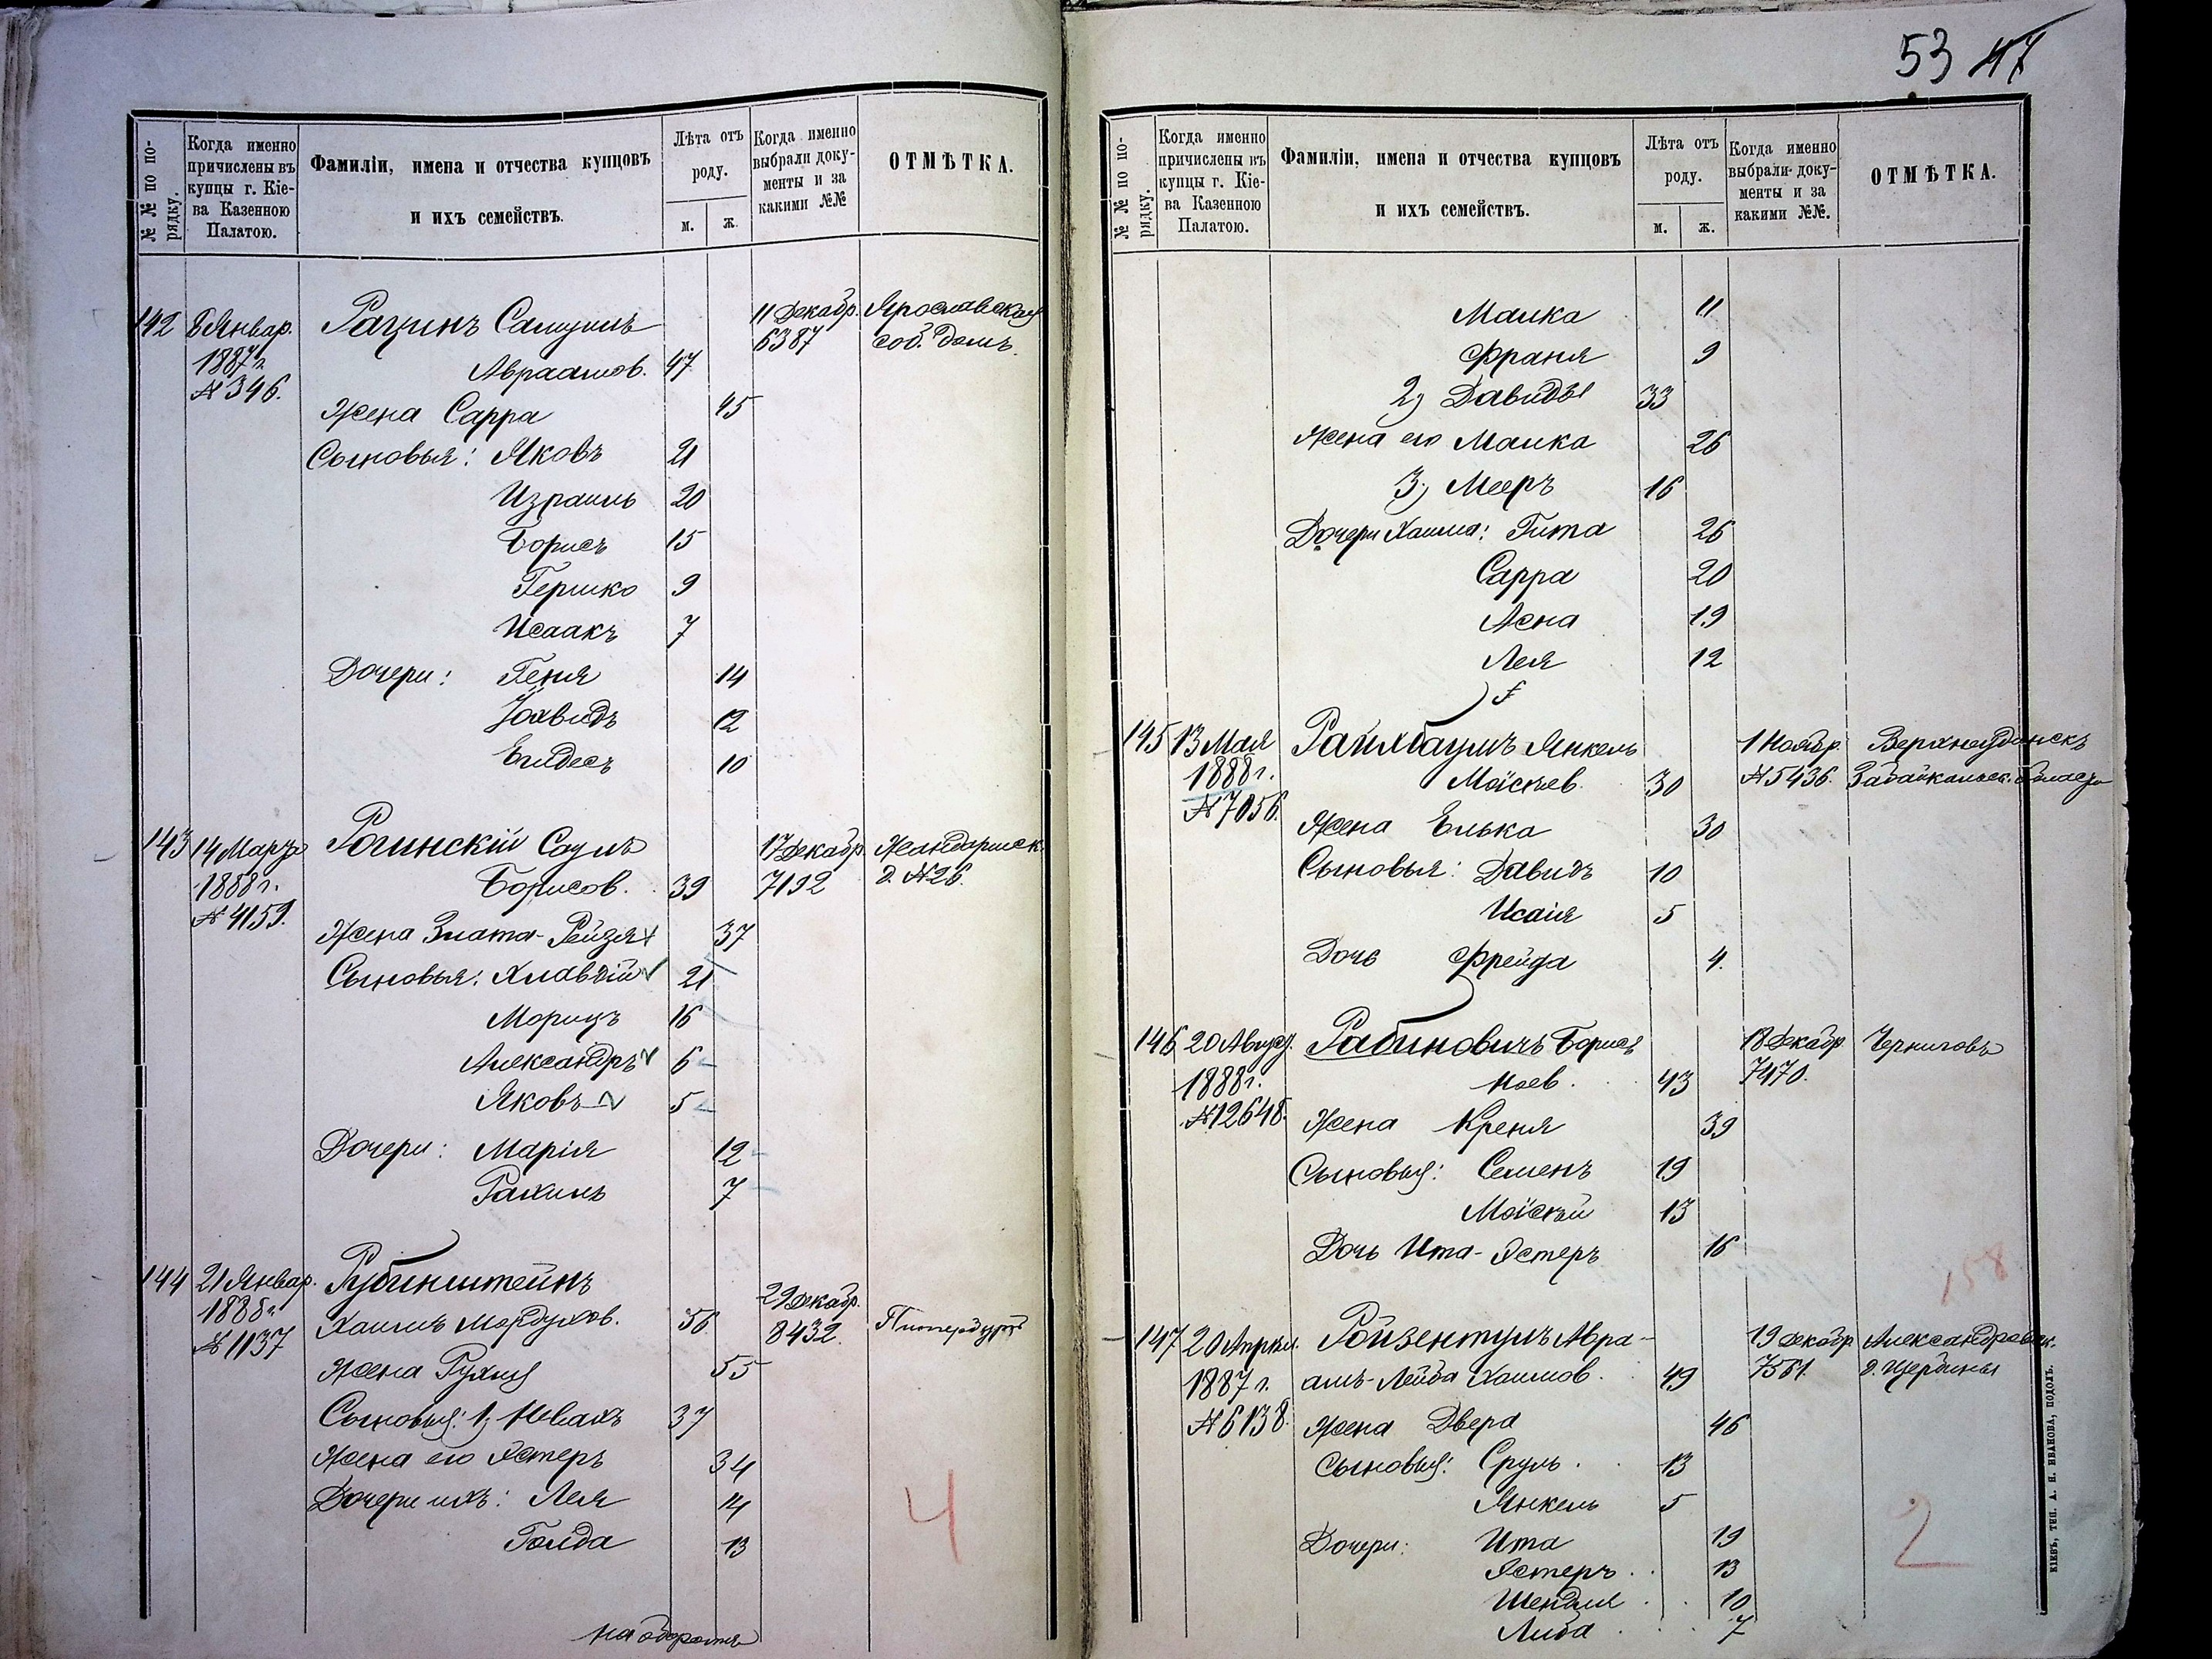 53 47
№ № по по-
рядку.
Когда именно
причислены въ
купцы г. Кіе-
ва Казенною
Палатою.
Фамиліи, имена и отчества купцовъ
и ихъ семействъ.
Лѣта отъ
роду.
м. ж.
Когда именно
выбрали доку-
менты и за
какими №№
ОТМѢТКА.
142 8 Январ. Рагинъ Самуилъ 11 Декабр. Ярославская
1887 г. 6387 соб. домъ.
Авраамов. 47
№ 346.
Жена Сарра 45
Сыновья: Яковъ 21
Израиль 20
Борисъ 15
Гершко 9
Исаакъ 7
Дочери: Геня 14
Іохвидъ 12
10
143 14 Марта Рогинскій Саулъ 17 Декабр. Жандармск.
1888 г. Борисов. 39 7192 д. № 26.
№ 4159.
Жена Злата-Рейзя 37
Сыновья: 21
Морицъ 16
Александръ 6
Яковъ 5
Дочери: Марія 12
Рахиль 7
144 21 Январ. Рубинштейнъ 29 Декабр.
1888 г. Хаимъ Мордухов. 56 8432. Питербургъ
№ 1137
Жена Рухля 55
Сыновья: 1) Невахъ 37
Жена его Эстеръ 34
Дочери ихъ: Лея 14
Голда 13
на оборотѣ
4
№ № по по-
рядку.
Когда именно
причислены въ
купцы г. Кіе-
ва Казенною
Палатою.
Фамиліи, имена и отчества купцовъ
и ихъ семействъ.
Лѣта отъ
роду.
м. ж.
Когда именно
выбрали доку-
менты и за
какими №№.
ОТМѢТКА.
Малка 11
Франя 9
2) Давидъ 33
Жена его Малка 26
3) Мееръ 16
Дочери Хаима: Гита 26
Сарра 20
Асна 19
Лея 12
145 13 Мая Райхбаумъ Янкель 1 Ноябр. Верхнеудинскъ
1888 г. Моісеев. 30 № 5436. Забайкальск. области
№ 7056.
Жена Елька 30
Сыновья: Давидъ 10
Исаія 5
Дочь Фрейда 4.
146 20 Август. Рабиновичъ Борисъ 18 Декабр. Черниговъ
1888 г. Ноев. 43 7470.
№ 12648.
Жена Креня 39
Сыновья: Семенъ 19
Моісей 13
Дочь Ита-Эстеръ 16
158
147 20 Апрѣл. Ройзентулъ Авра- 19 Декабр. Александровск.
1887 г. амъ-Лейба Хаимов. 49 7561. д. Щербины
№ 6138.
Жена Двера 46
Сыновья: Сруль 13
Янкель 5
Дочери: Ита 19
Эстеръ 13
Шендля 10
Либа 7
2
КІЕВЪ, ТИП. А. Н. ИВАНОВА, ПОДОЛЪ.